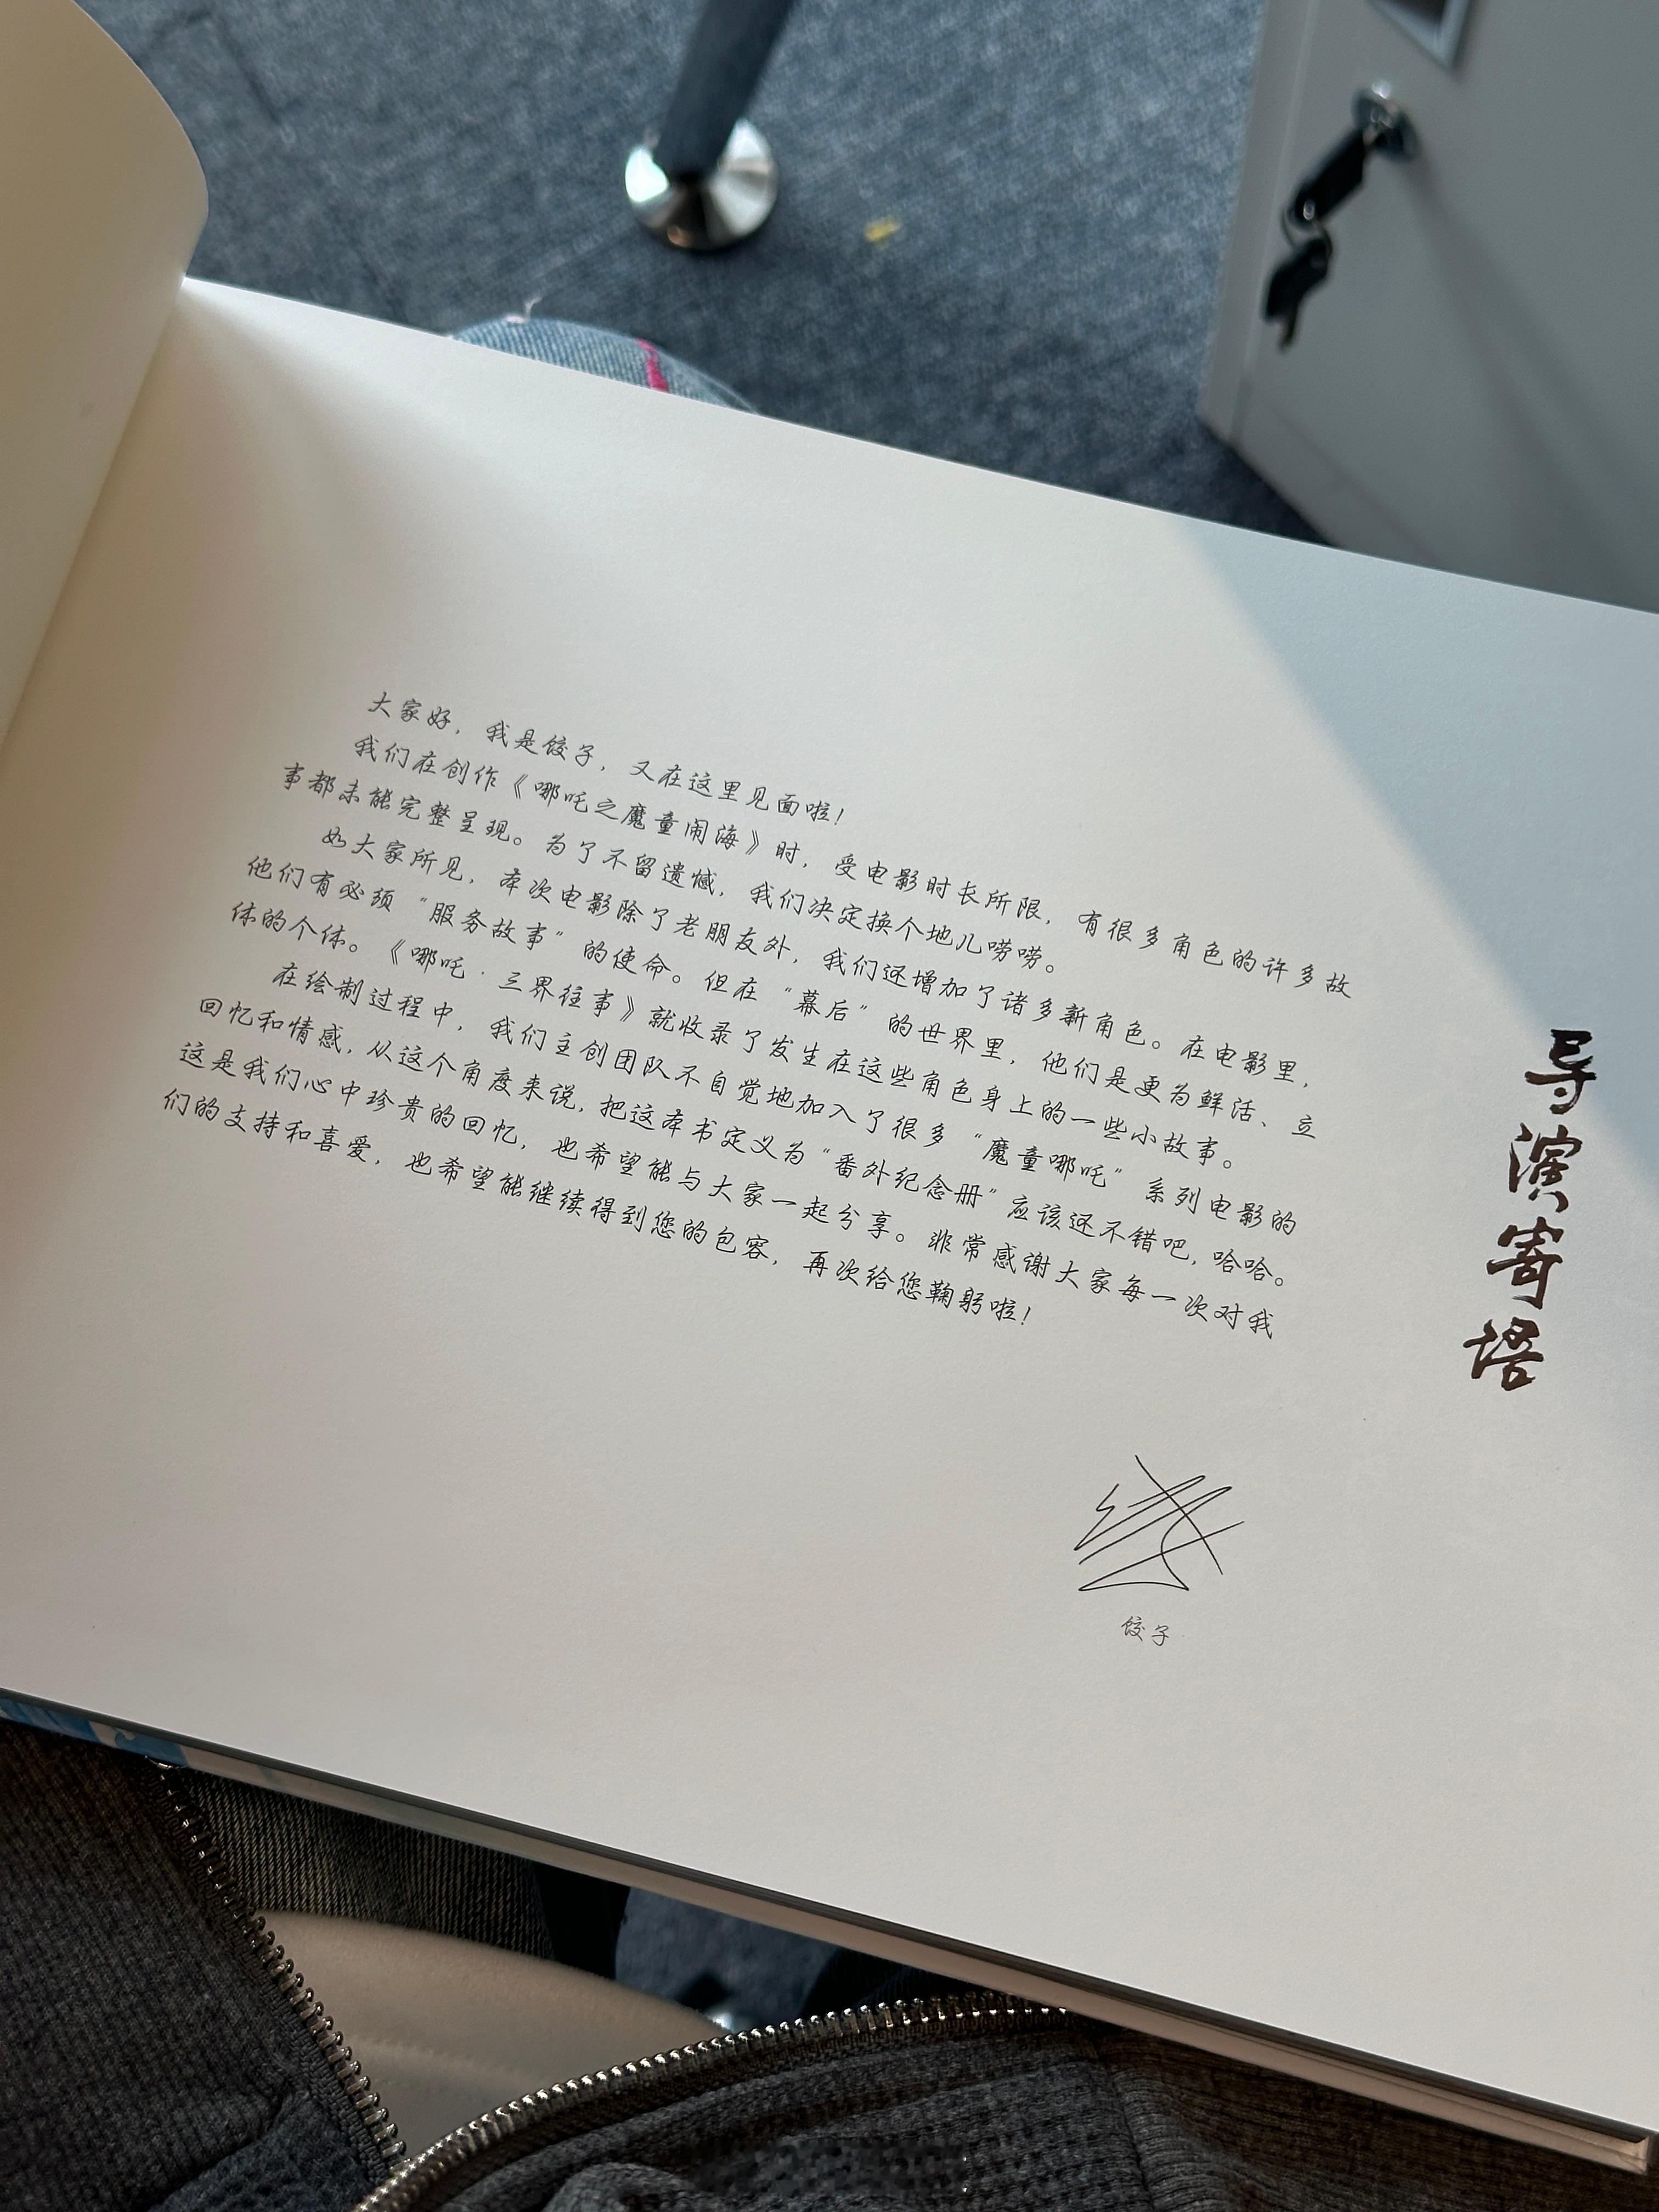 导演寄语
大家好，我是饺子，又在这里见面啦！
我们在创作《哪吒之魔童闹海》时，受电影时长所限，有很多角色的许多故
事都未能完整呈现。为了不留遗憾，我们决定换个地儿唠唠。
如大家所见，本次电影除了老朋友外，我们还增加了诸多新角色。在电影里，
他们有必须“服务故事”的使命。但在“幕后”的世界里，他们是更为鲜活、立
体的个体。《哪吒·三界往事》就收录了发生在这些角色身上的一些小故事。
在绘制过程中，我们主创团队不自觉地加入了很多“魔童哪吒”系列电影的
回忆和情感，从这个角度来说，把这本书定义为“番外纪念册”应该还不错吧，哈哈。
这是我们心中珍贵的回忆，也希望能与大家一起分享。非常感谢大家每一次对我
们的支持和喜爱，也希望能继续得到您的包容，再次给您鞠躬啦！
饺子